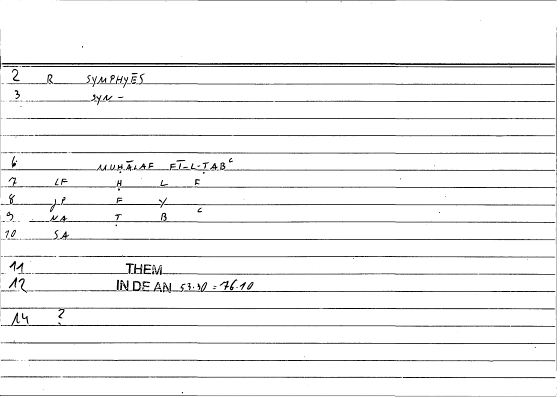 2 R SYMPHYĒS
3 SYN -
6 MUḪĀLAF FĪ-L-ṬABᶜ
7 LF Ḫ L F
8 JP F Y
9 NA Ṭ B ᶜ
10 SA
11 THEM
12 IN DE AN 53.30 = 76.10
14 ?